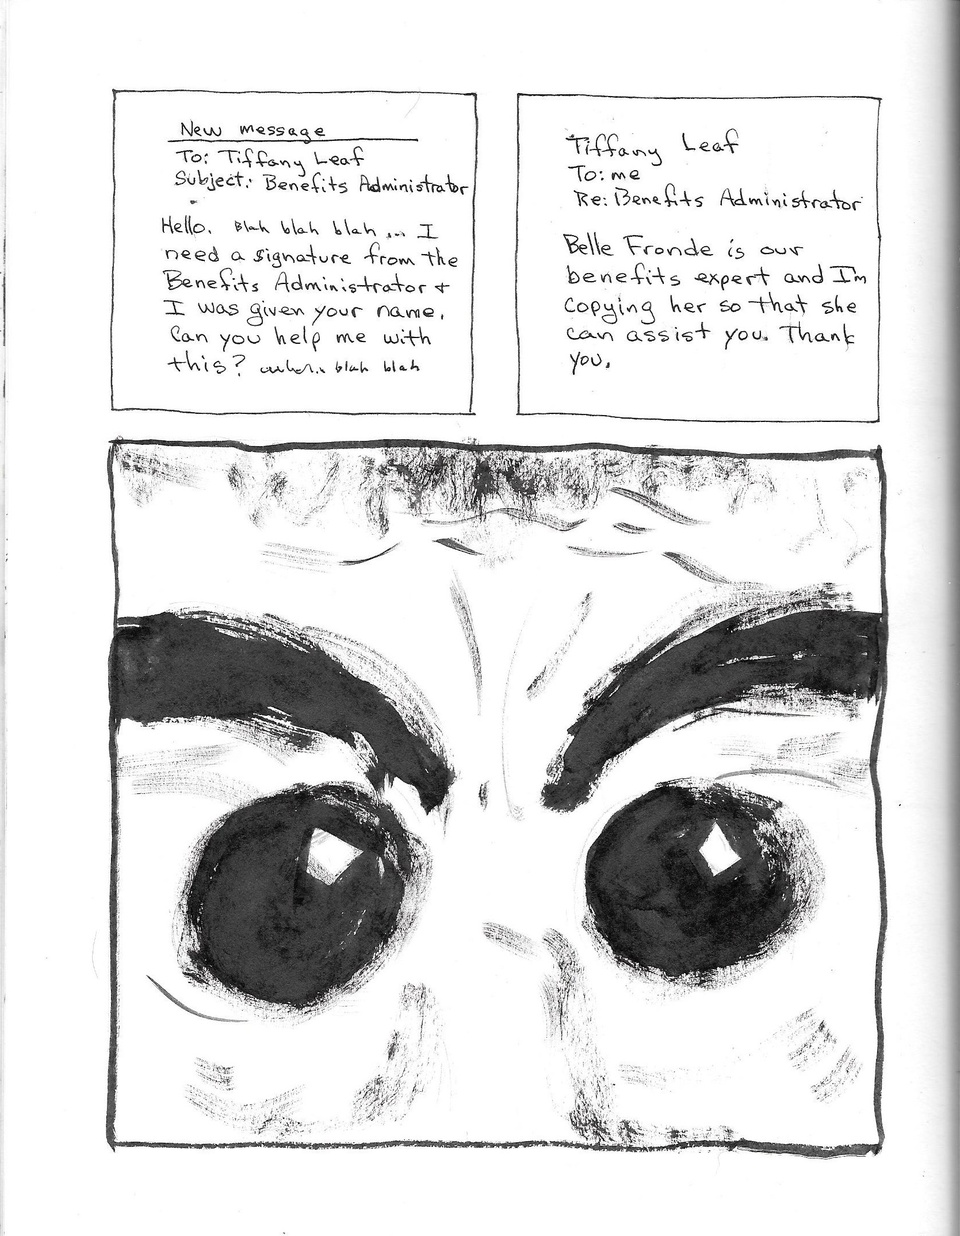 New message
To: Tiffany Leaf
Subject: Benefits Administrator
Hello. Blah blah blah ... I
need a signature from the
Benefits Administrator +
I was given your name.
Can you help me with
this? blah blah
Tiffany Leaf
To: me
Re: Benefits Administrator
Belle Fronde is our
benefits expert and I'm
copying her so that she
can assist you. Thank
you.